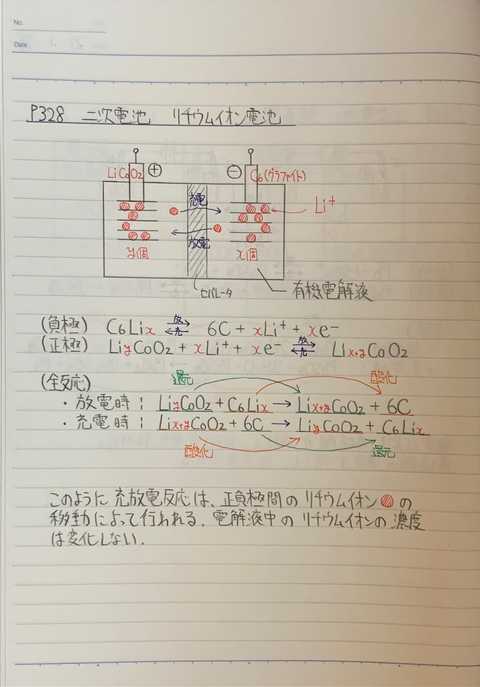 No.
Date
P328 二次電池 リチウムイオン電池
LiCoO2 ⊕ ⊖ C6(グラファイト)
充電
Li+
放電
y個 x個
セパレータ 有機電解液
(負極) C6Lix ⇄ 6C + xLi+ + xe-
放
充
(正極) LiyCoO2 + xLi+ + xe- ⇄ Lix+yCoO2
放
充
(全反応) 還元 酸化
・放電時: LiyCoO2 + C6Lix → Lix+yCoO2 + 6C
・充電時: Lix+yCoO2 + 6C → LiyCoO2 + C6Lix
酸化 還元
このように充放電反応は、正負極間のリチウムイオンの
移動によって行われる. 電解液中のリチウムイオンの濃度
は変化しない.